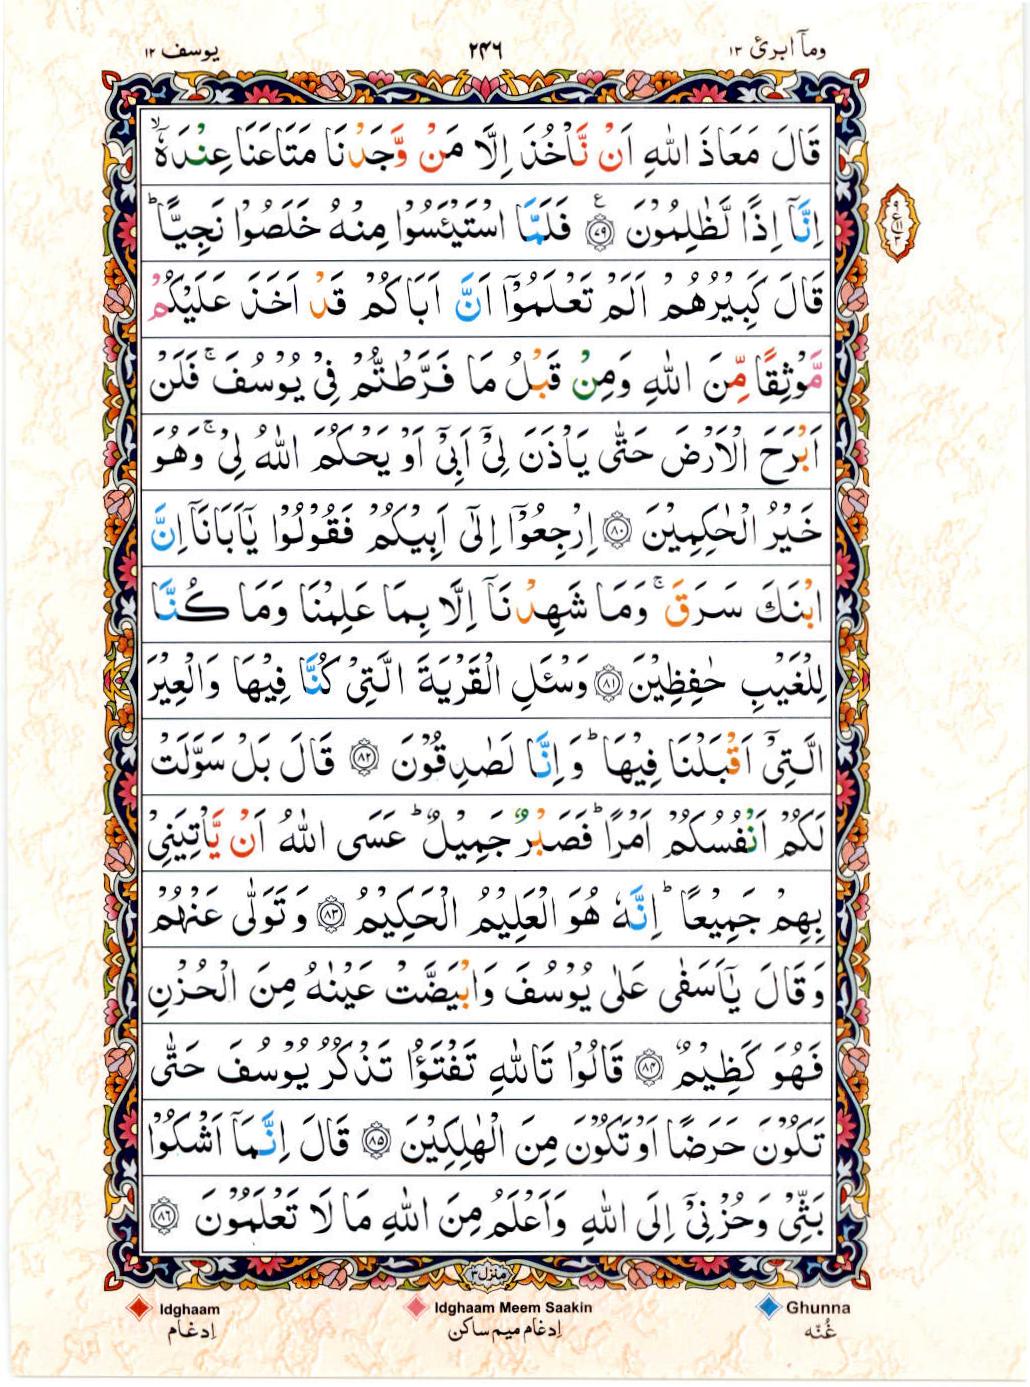 وماۤ ابرئ ١٣
٢٤٦
يوسف ١٢
قَالَ مَعَاذَ اللّٰهِ اَنْ نَّاْخُذَ اِلَّا مَنْ وَّجَدْنَا مَتَاعَنَا عِنْدَهٗۤ ۙ
اِنَّاۤ اِذًا لَّظٰلِمُوْنَ ﴿٧٩﴾ ع فَلَمَّا اسْتَيْئَسُوْا مِنْهُ خَلَصُوْا نَجِيًّا ؕ
قَالَ كَبِيْرُهُمْ اَلَمْ تَعْلَمُوْۤا اَنَّ اَبَاكُمْ قَدْ اَخَذَ عَلَيْكُمْ
مَّوْثِقًا مِّنَ اللّٰهِ وَمِنْ قَبْلُ مَا فَرَّطْتُّمْ فِيْ يُوْسُفَ ۚ فَلَنْ
اَبْرَحَ الْاَرْضَ حَتّٰى يَاْذَنَ لِيْۤ اَبِيْۤ اَوْ يَحْكُمَ اللّٰهُ لِيْ ۚ وَهُوَ
خَيْرُ الْحٰكِمِيْنَ ﴿٨٠﴾ اِرْجِعُوْۤا اِلٰۤى اَبِيْكُمْ فَقُوْلُوْا يٰۤاَبَانَاۤ اِنَّ
ابْنَكَ سَرَقَ ۚ وَمَا شَهِدْنَاۤ اِلَّا بِمَا عَلِمْنَا وَمَا كُنَّا
لِلْغَيْبِ حٰفِظِيْنَ ﴿٨١﴾ وَسْئَلِ الْقَرْيَةَ الَّتِيْ كُنَّا فِيْهَا وَالْعِيْرَ
الَّتِيْۤ اَقْبَلْنَا فِيْهَا ؕ وَاِنَّا لَصٰدِقُوْنَ ﴿٨٢﴾ قَالَ بَلْ سَوَّلَتْ
لَكُمْ اَنْفُسُكُمْ اَمْرًا ؕ فَصَبْرٌ جَمِيْلٌ ؕ عَسَى اللّٰهُ اَنْ يَّاْتِيَنِيْ
بِهِمْ جَمِيْعًا ؕ اِنَّهٗ هُوَ الْعَلِيْمُ الْحَكِيْمُ ﴿٨٣﴾ وَتَوَلّٰى عَنْهُمْ
وَقَالَ يٰۤاَسَفٰى عَلٰى يُوْسُفَ وَابْيَضَّتْ عَيْنٰهُ مِنَ الْحُزْنِ
فَهُوَ كَظِيْمٌ ﴿٨٤﴾ قَالُوْا تَاللّٰهِ تَفْتَؤُا تَذْكُرُ يُوْسُفَ حَتّٰى
تَكُوْنَ حَرَضًا اَوْ تَكُوْنَ مِنَ الْهٰلِكِيْنَ ﴿٨٥﴾ قَالَ اِنَّمَاۤ اَشْكُوْا
بَثِّيْ وَحُزْنِيْۤ اِلَى اللّٰهِ وَاَعْلَمُ مِنَ اللّٰهِ مَا لَا تَعْلَمُوْنَ ﴿٨٦﴾
منزل ٣
Idghaam
Idghaam Meem Saakin
Ghunna
اِدغام
اِدغام ميم ساكن
غُنّه